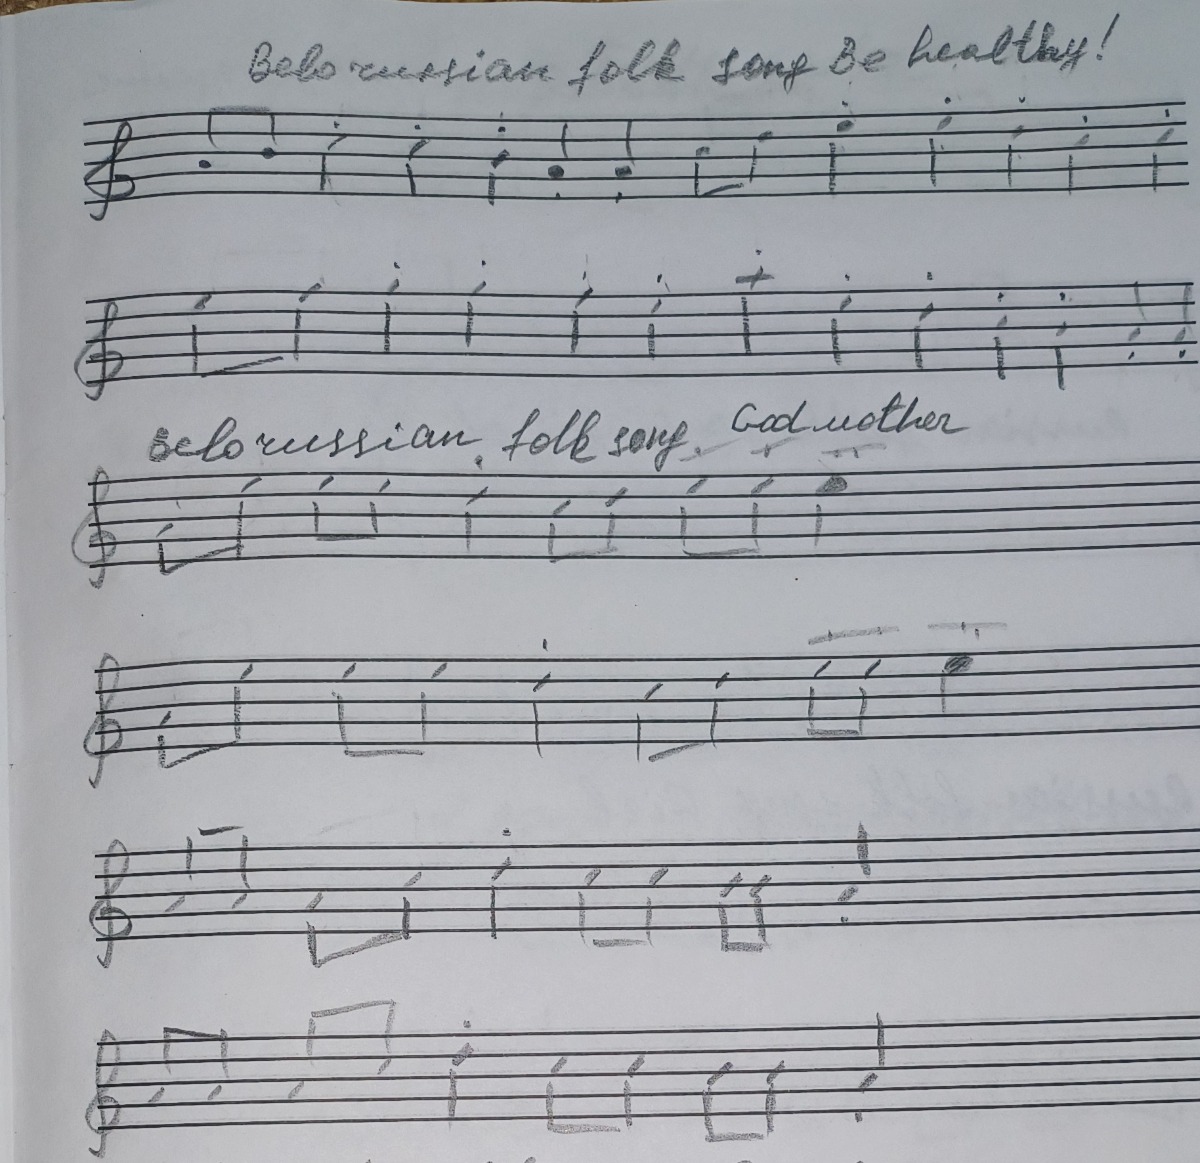 Belorussian folk song Be healthy!
Belorussian folk song. Godmother